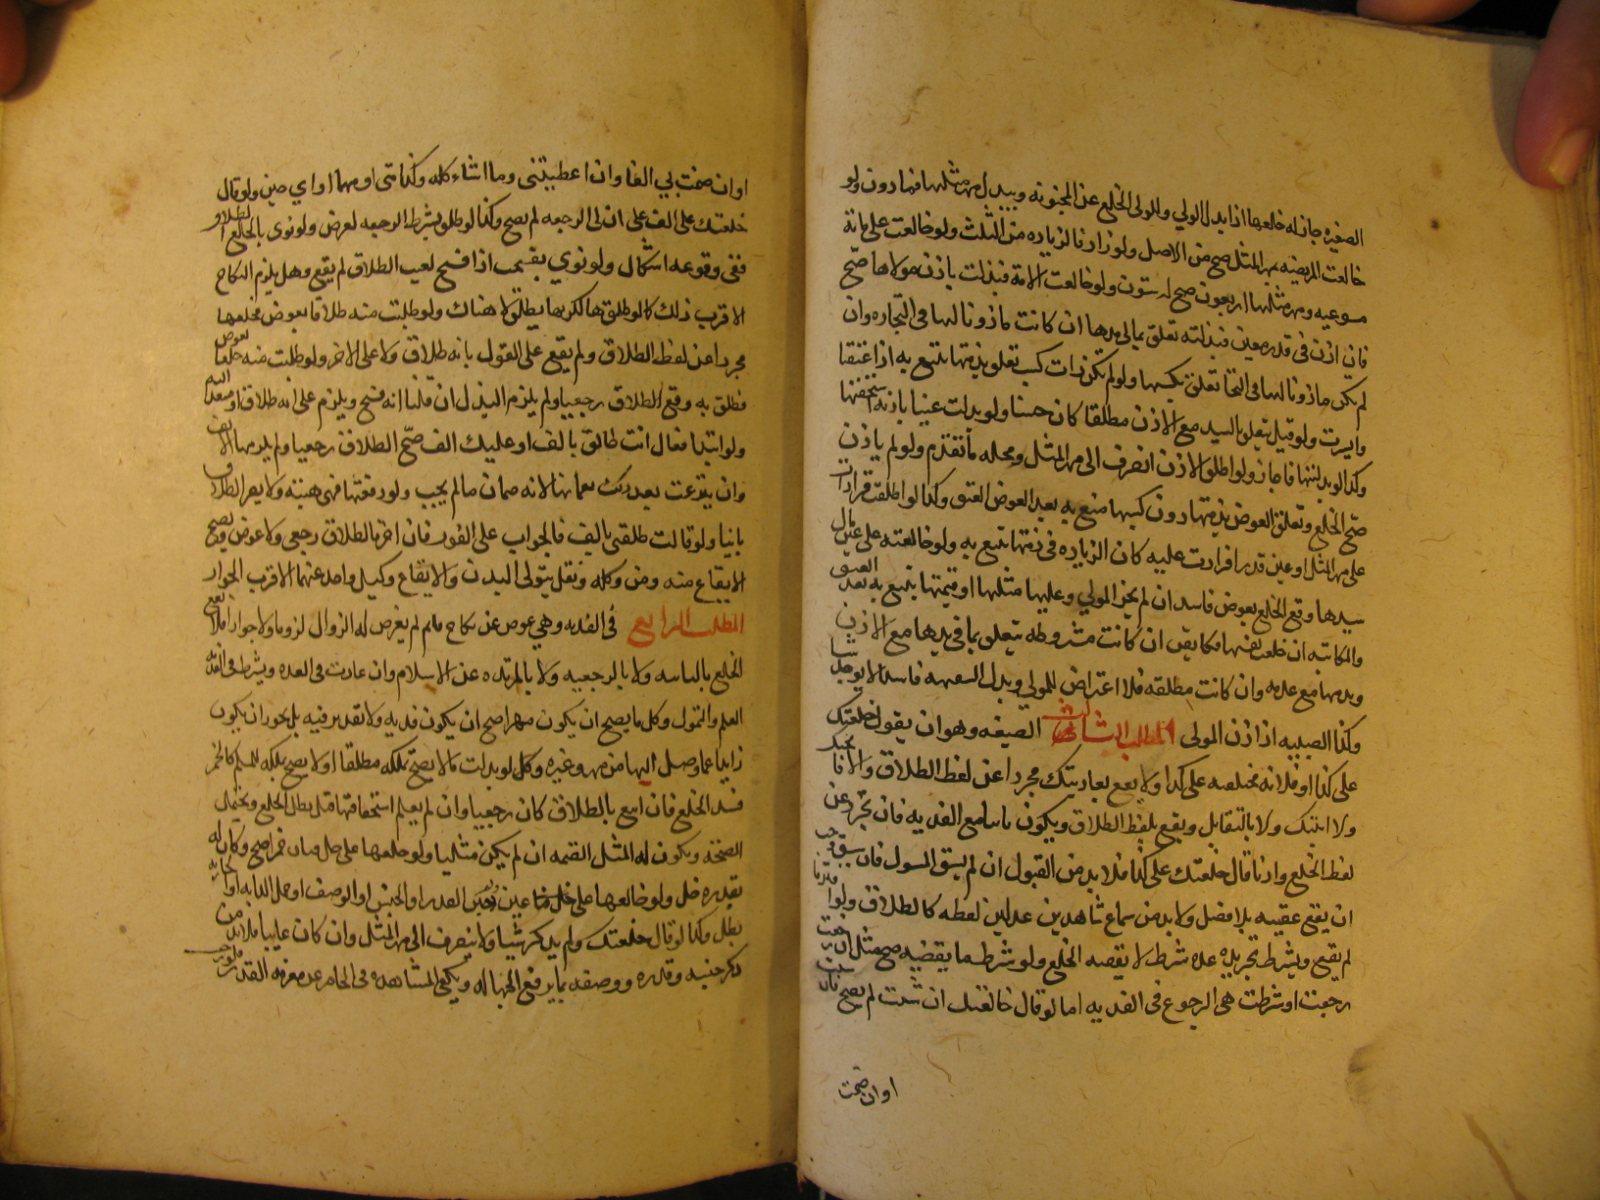 الصغيره جاز له خلعها اذا بدل الولي وللولى الخلع عن المجنونه ويبدل مهر مثلها فما دون ولو
خالعت المريضه بمهر المثل صح من الاصل ولو زاد فالزياده من الثلث ولو خالعت على مائة
مستوعبه ومهر مثلها اربعون صح له ستون ولو خالعت الامة فبذلت باذن مولاها صح
فان اذن فى قدر معين فبذلته تعلق بمال فى يدها ان كانت ماذونا لها فى التجاره وان
لم يكن ماذونا لها فى التجا تعلق بكسبها ولو لم يكن ذات كسب تعلق بذمتها يتبع به اذا اعتقا
وايسرت ولو قيل يتعلق بالسيد مع الاذن مطلقا كان حسنا ولو بدلت عينا باذنه استحقها
وكذا لو بدلتها فاجاز ولو اطلق الاذن انصرف الى مهر المثل ومحله ما تقدم ولو لم ياذن
صح الخلع وتعلق العوض بذمتها دون كسبها فيتبع به بعد العتق وكذا لو اطلقت فزادت
على مهر المثل او عين قدرا فزادت عليه كان الزياده فى ذمتها يتبع به ولو خالعته على عين مال
سيدها وقع الخلع بعوض فاسد ان لم يجز المولي وعليها مثلها او قيمتها يتبع به بعد العتق
والمكاتبه ان خلعت نفسها فكالقن ان كانت مشروطه يتعلق بما فى يدها مع الاذن
وبدمها مع عدمه وان كانت مطلقه فلا اعتراض للمولي وبدل السفيهه فاسد لا يوجب شيا
وكذا الصبيه اذا اذن المولى المطلب الثالث الصيغه وهو ان يقول خلعتك
على كذا او فلانه مختلعه على كذا ولا يقع بفاديتك مجردا عن لفظ الطلاق ولا فا
ولا ابنتك ولا بالتقايل ويقع بلفظ الطلاق ويكون باينا مع الفديه فان تجرد عن
لفظ الخلع واذا قال خلعتك على كذا فلا بد من القبول ان لم يسبق السوال فان سبق وجب
ان يقع عقيبه بلا فصل ولابد من سماع شاهدين عدلين لفظه كالطلاق ولو افترقا
لم يقع ويشترط تجريده عن شرط لا يقتضيه الخلع ولو شرط ما يقتضيه صح مثل ان رجعت
رجعت او شرطت هى الرجوع فى الفديه اما لو قال خالعتك ان شئت لم يصح وان شاءت
او ان ضمنت
او ان ضمنت لي الفا وان اعطيتنى وما اشاء كله وكذا متى او مهما او اي حين ولو قال
خلعتك على الف على ان لى الرجعه لم يصح وكذا لو طلق بشرط الرجعه لعوض ولو نوى بالخلع الطلاق
ففى وقوعه اشكال ولو نوي بفسخت اذا فسخ لعيب الطلاق لم يقع وهل يلزم النكاح
الاقرب ذلك كما لو طلقها لكن هنا يطلق لا هناك ولو طلبت منه طلاقا بعوض فخلعها
مجردا عن لفظ الطلاق ولم يقع على القول بانه طلاق ولا على الاخر ولو طلبت منه خلعا بعوض
فطلق به وقع الطلاق رجعيا ولم يلزم البذل ان قلنا انه فسخ ويلزم على انه طلاق او مفتقر اليه
ولو ابتدا فقال انت طالق بالف او عليك الف صح الطلاق رجعيا ولم يلزمها الالف
وان تبرعت بعد ذلك بضمانها لانه ضمان ما لم يجب ولو دفعتها فهى هبته ولا يصير الطلاق
باينا ولو قالت طلقنى بالف فالجواب على الفور فان اخر فالطلاق رجعي ولا عوض ويصح
الايقاع منه ومن وكله وهل يتولى البذل والايقاع وكيل واحد عنهما الاقرب الجواز
المطلب الرابع فى الفديه وهي عوض عن نكاح قايم لم يعرض له الزوال لزوما ولا جوازا فلا يقع
الخلع بالباينه ولا بالرجعيه ولا بالمرتده عن الاسلام وان عادت فى العده ويشترط فى الفديه
العلم والتمول وكل ما يصح ان يكون مهرا صح ان يكون فديه ولا تقدير فيه بل يجوز ان يكون
زايدا عما وصل اليها من مهر وغيره وكل لو بدلت ما لا يصح تملكه مطلقا او لا يصح تملكه للمسلم كالخمر
فسد الخلع فان اتبع بالطلاق كان رجعيا وان لم يعلم استحقاقها قيل بطل الخلع ويحتمل
الصحه ويكون له المثل او القيمه ان لم يكن مثليا ولو خلعها على خل فبان خمرا صح وكان له
بقدره خل ولو خالعها على خل ما عين دون القدر او الجنس او الوصف او حمل الدابه او الجاريه
بطل وكذا لو قال خلعتك ولم يذكر شيا ولا ينصرف الى مهر المثل وان كان غايبا فلابد من
ذكر جنسه وقدره ووصفه بما يرفع الجهاله ويكفى المشاهده فى الحاضر عن معرفه القدر